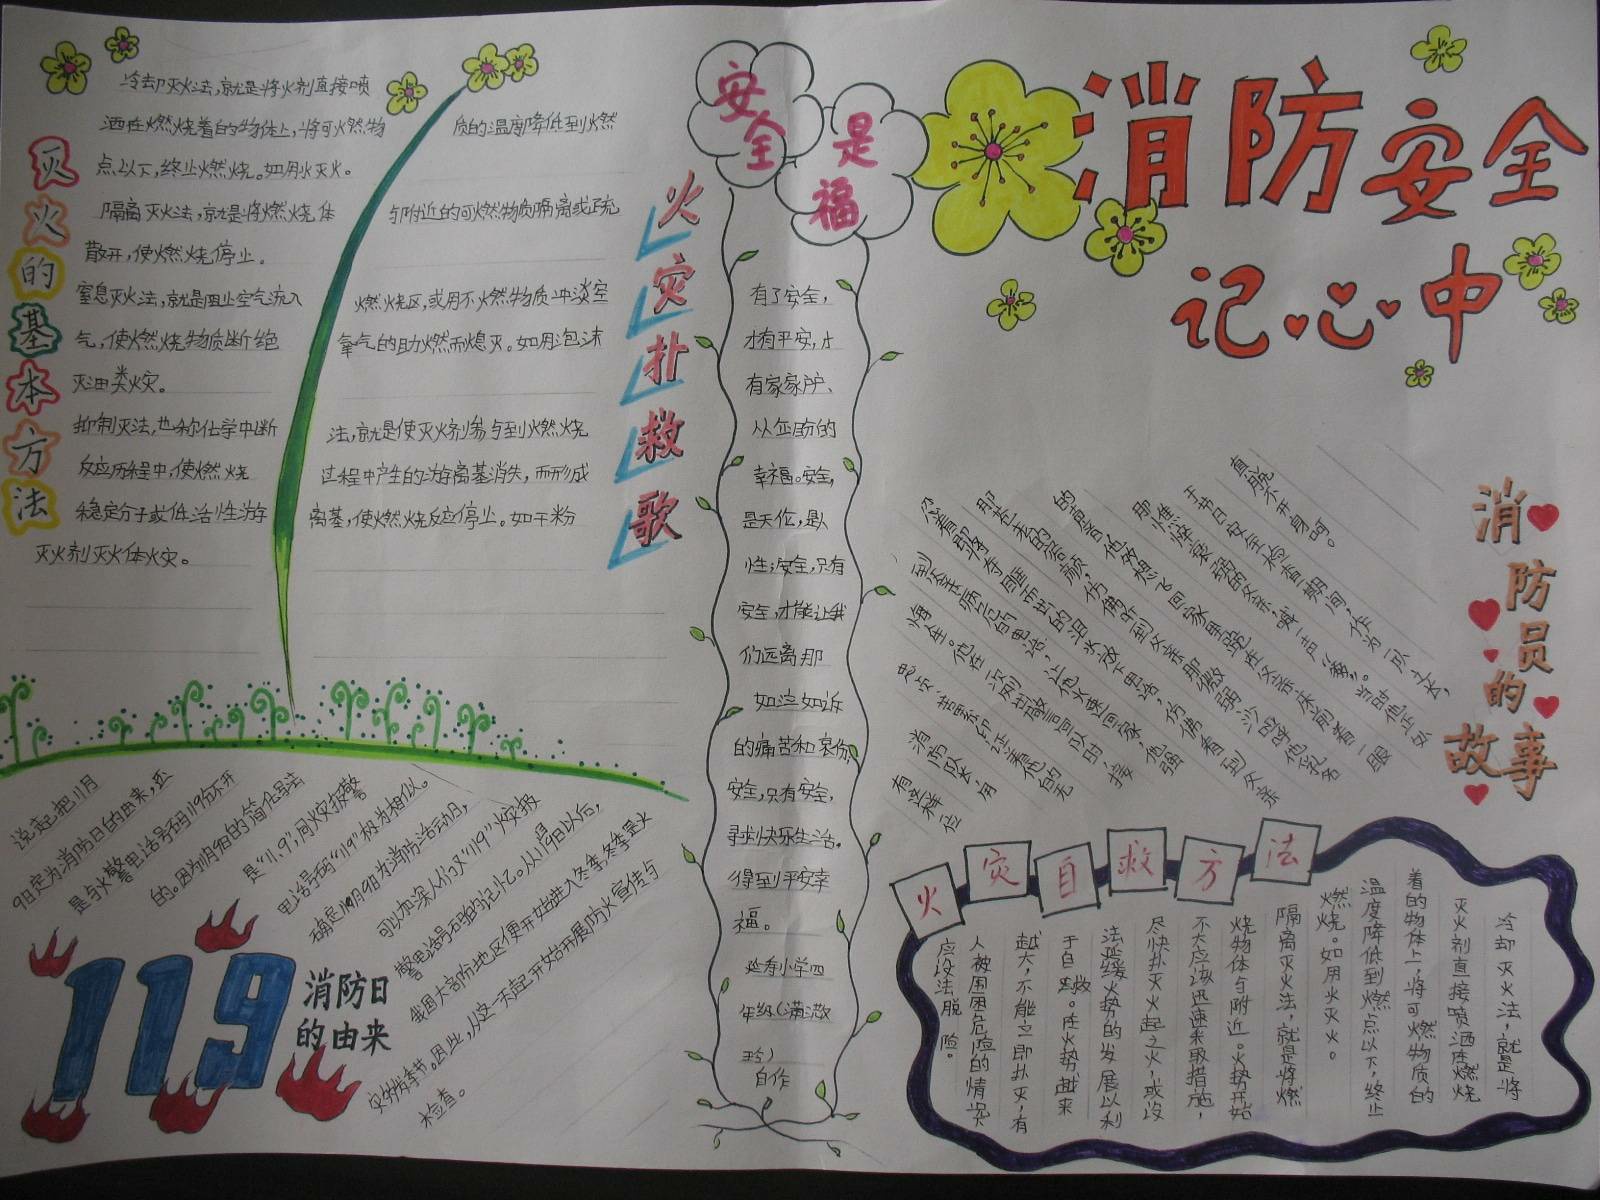 消防安全
记心中
安全
是福
灭火的基本方法
冷却灭火法,就是将火剂直接喷
洒在燃烧着的物体上,将可燃物
质的温度降低到燃
点以下,终止燃烧。如用水灭火。
隔离灭火法,就是将燃烧体
与附近的可燃物质隔离或疏
散开,使燃烧停止。
窒息灭火法,就是阻止空气流入
燃烧区,或用不燃物质冲淡空
气,使燃烧物质断绝
氧气的助燃而熄灭。如用泡沫
灭油类火灾。
抑制灭法,也称化学中断
法,就是使灭火剂参与到燃烧
反应历程中,使燃烧
过程中产生的游离基消失,而形成
稳定分子或低活性游
离基,使燃烧反应停止。如干粉
灭火剂灭火体火灾。
火灾扑救歌
有了安全,
才有平安,才
有家家户、
幸福。安全,
是天伦,是人
性;安全,只有
安全,才能让我
们远离那
如泣如诉
的痛苦和哀伤
安全,只有安全,
寻找快乐生活。
得到平安幸
福。
延寿小学四
自作
119
消防日
的由来
说起把11月
9日定为消防日的由来,还
是与火警电话号码119分不开
的。因为11月9日的简化写法
是“11、9”,同火灾报警
电话号码“119”极为相似。
确定11月9日为消防活动月,
可以加深人们对“119”火灾报
警电话号码的记忆。从11月9日以后,
我国大部防地区便开始进入冬季,冬季是火
灾多发季节。因此,从这一天起开始开展防火宣传与
检查。
消防员的故事
有这样位
消防队长,有
到父亲病危的电话,让他火速回家,他强
忍着即将夺眶而出的泪水放下电话,仿佛看到父亲
那苍老的容颜,仿佛听到父亲那微弱、沙哑呼他乳名
的声音他多想飞回家里跪在父亲床前看一眼
那憔悴衰弱的父亲,喊一声“爹”。当时他正处
于节日安全检查期间,作为一队之长,
真脱不开身呵。
火灾自救方法
冷却灭火法,就是将
灭火剂直接喷洒在燃烧
着的物体上,将可燃物质的
温度降低到燃点以下,终止
燃烧。如用水灭火。
隔离灭火法,就是将燃
烧物体与附近。火势开始
不大应该迅速采取措施,
尽快扑灭火起之火,或设
法延缓火势的发展以利
于自救。在火势越来
越大,不能立即扑灭,有
人被围困危险的情况
应设法脱险。